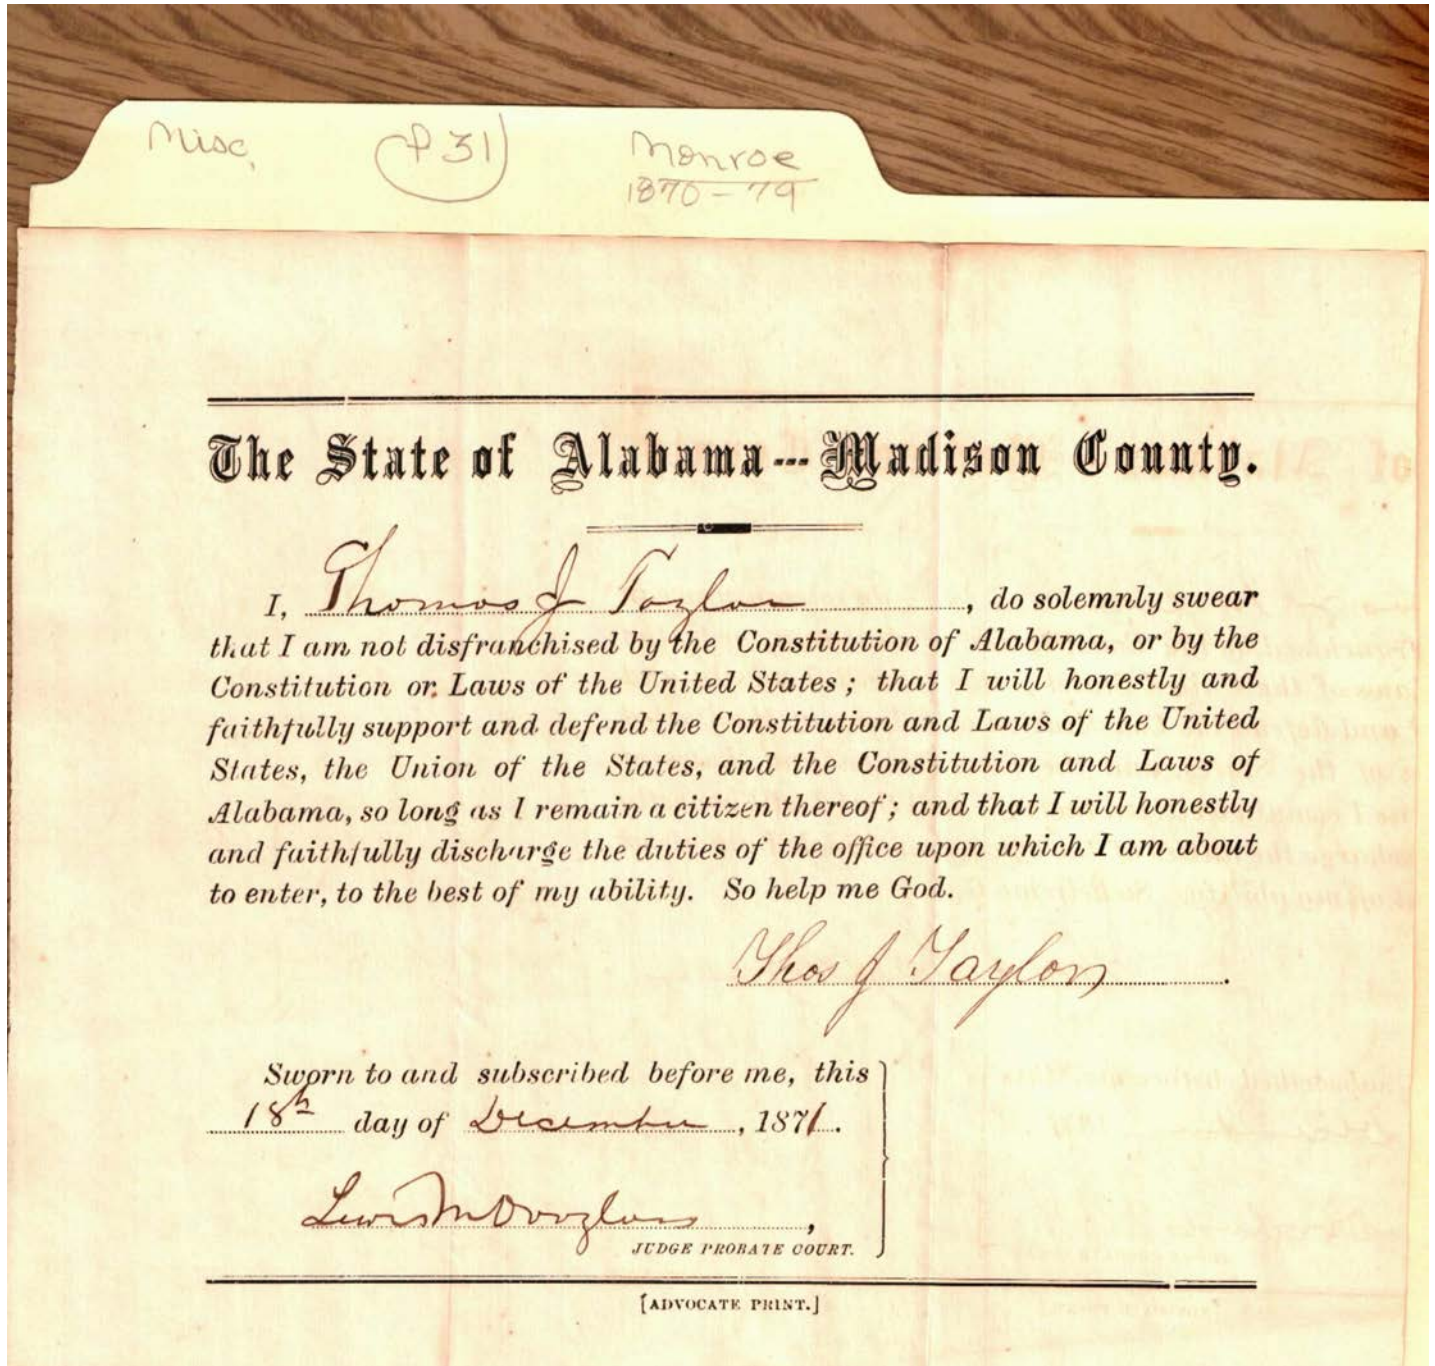 Misc. P31 Monroe
1870-79
The State of Alabama---Madison County.
I, Thomas J Taylor, do solemnly swear
that I am not disfranchised by the Constitution of Alabama, or by the
Constitution or Laws of the United States; that I will honestly and
faithfully support and defend the Constitution and Laws of the United
States, the Union of the States, and the Constitution and Laws of
Alabama, so long as I remain a citizen thereof; and that I will honestly
and faithfully discharge the duties of the office upon which I am about
to enter, to the best of my ability. So help me God.
Thos J Taylor.
Sworn to and subscribed before me, this
18th day of December, 1871.
Lewis M Douglass,
JUDGE PROBATE COURT.
[ADVOCATE PRINT.]